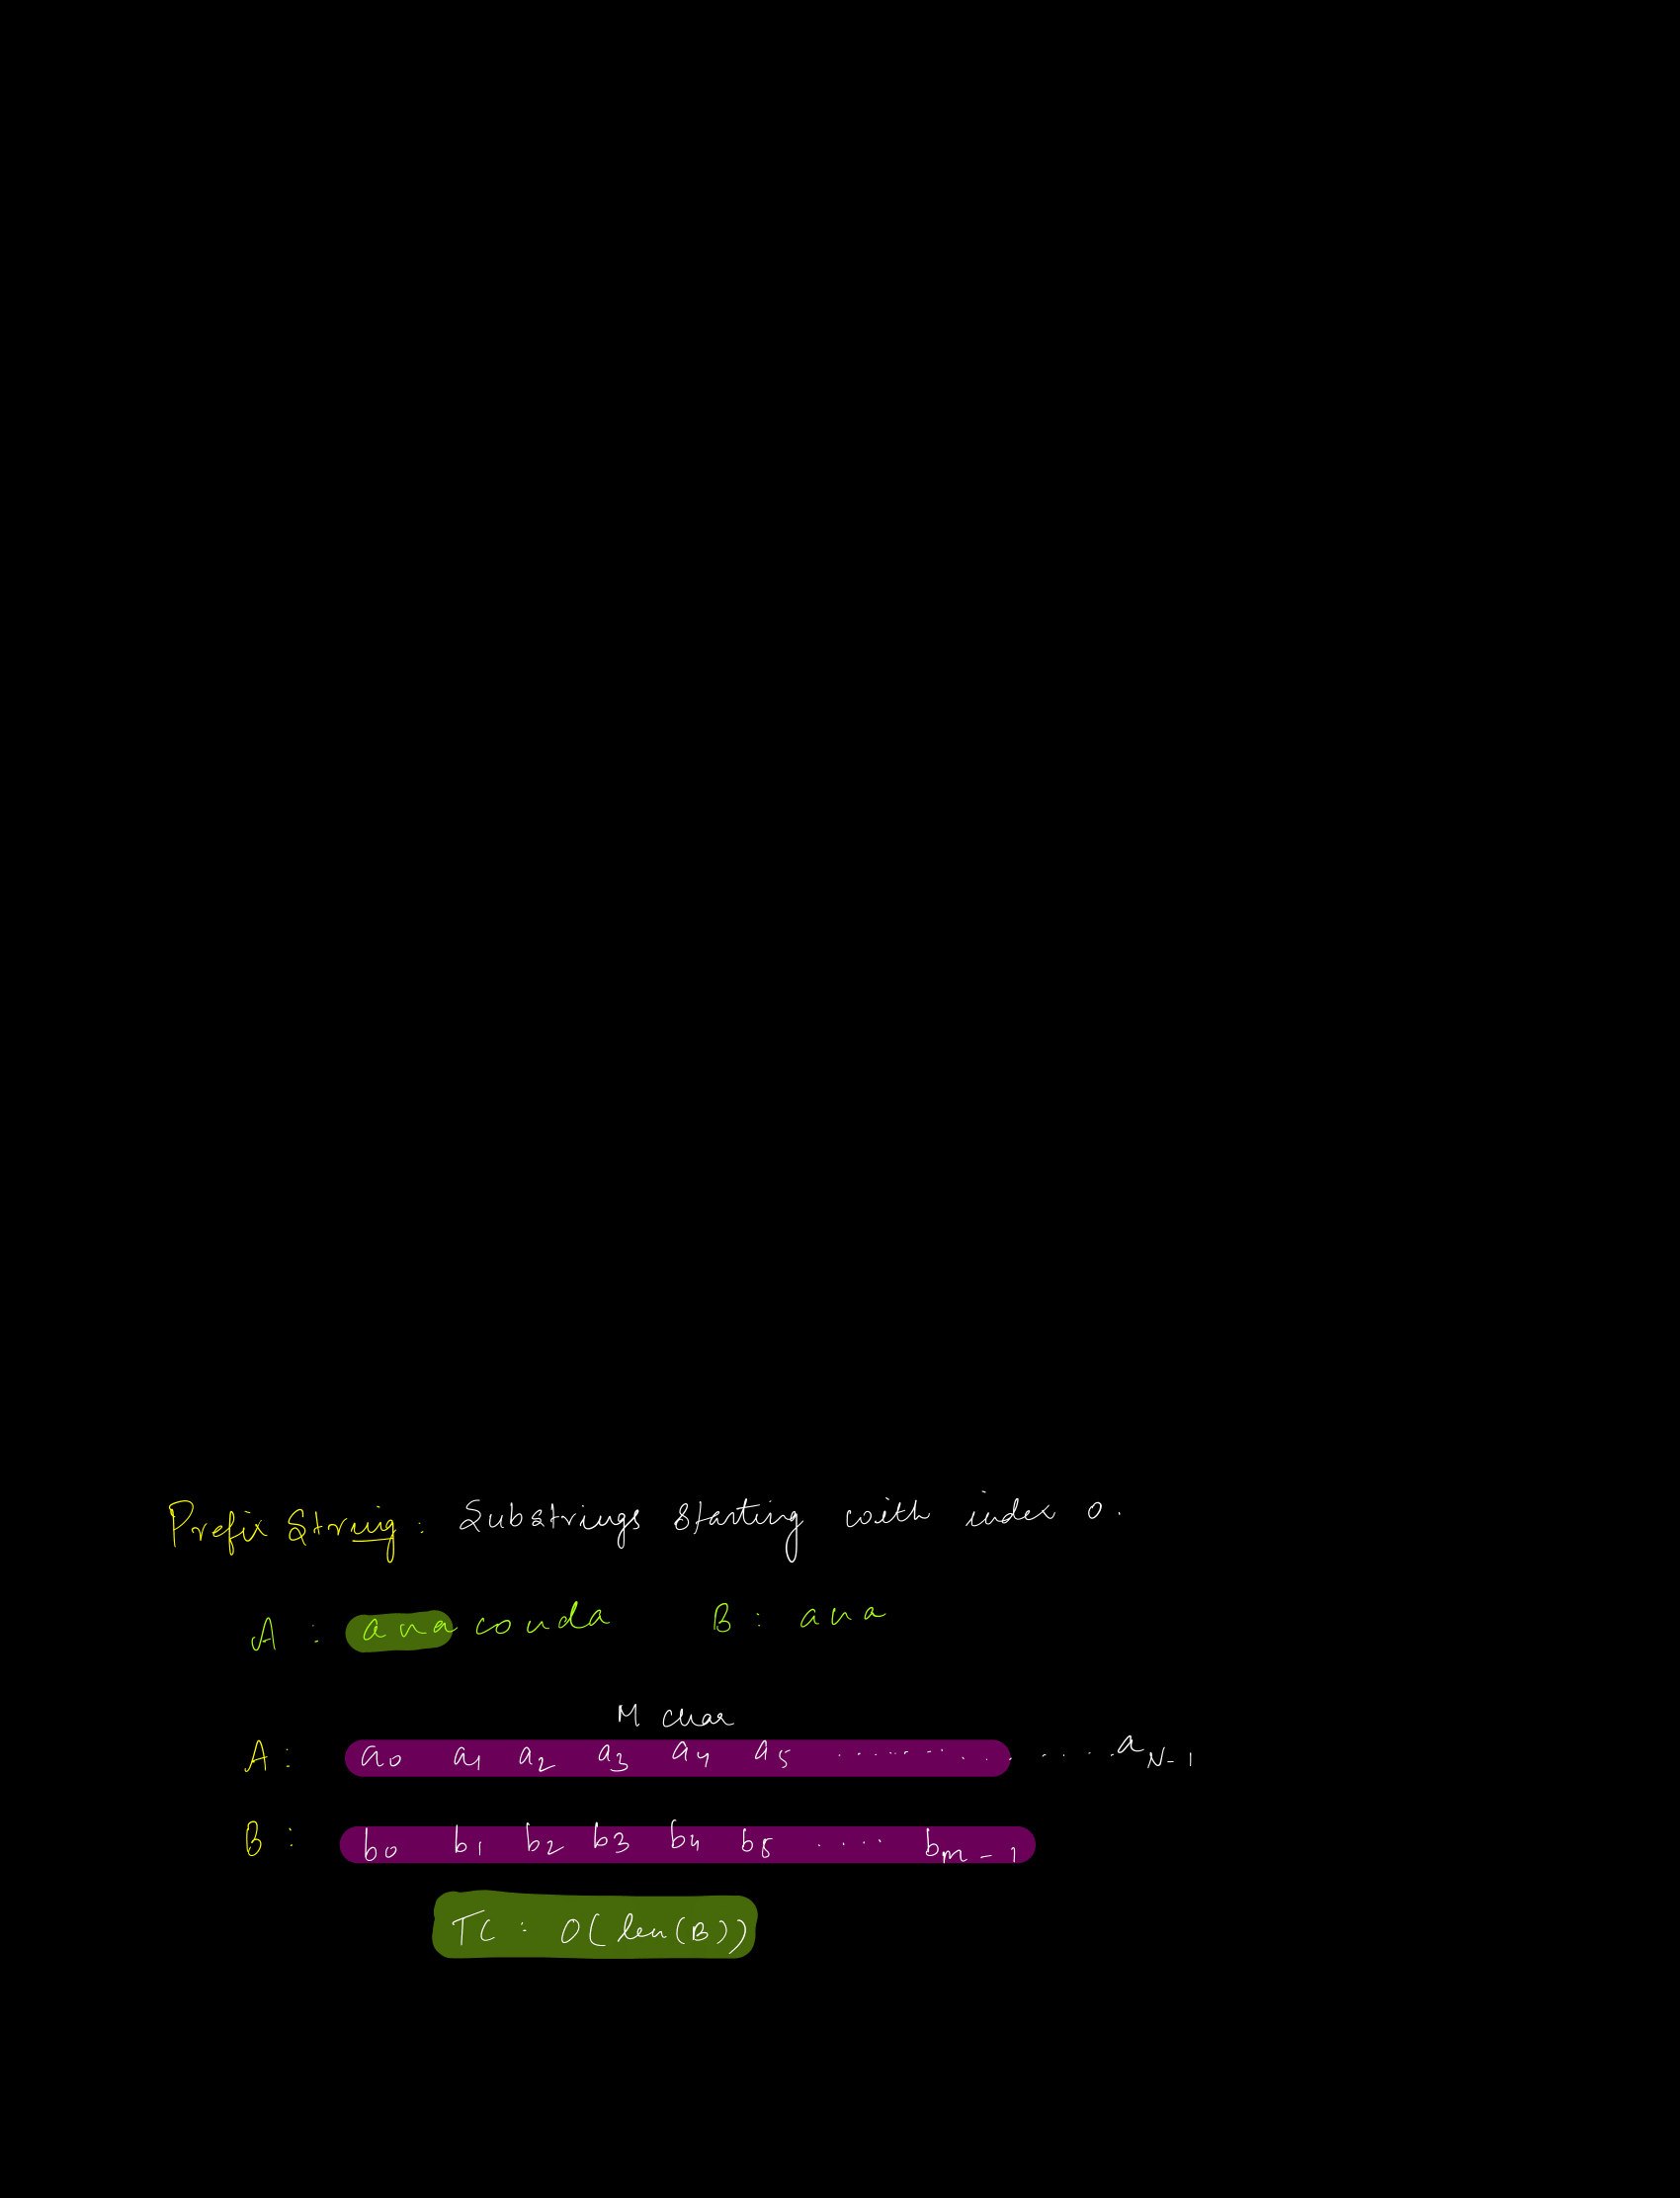 Prefix String: Substrings starting with index 0.
A : anaconda B : ana
M char
A: a0 a1 a2 a3 a4 a5 .................. aN-1
B : b0 b1 b2 b3 b4 b5 .... bm-1
TC : O(len(B))